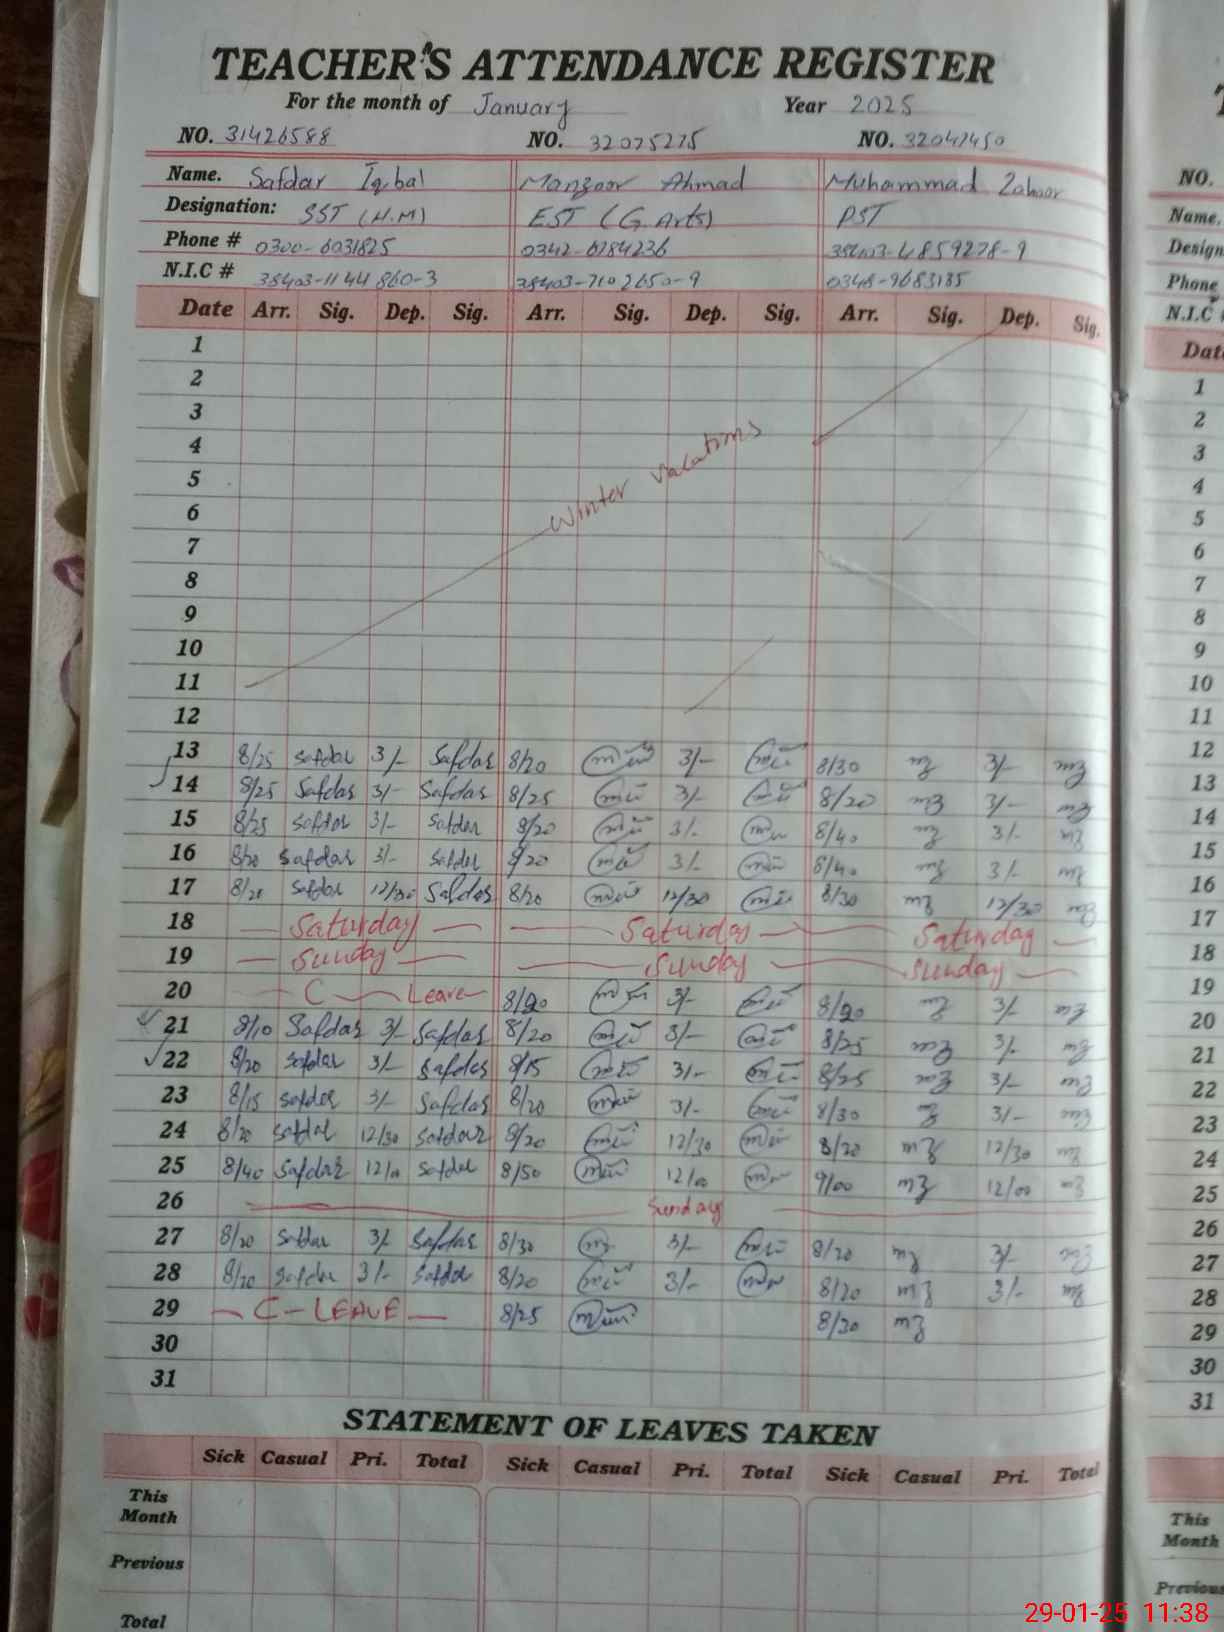 TEACHER'S ATTENDANCE REGISTER
For the month of January Year 2025
NO. 31426588 NO. 32075275 NO. 32047450
Name. Safdar Iqbal Manzoor Ahmad Muhammad Zahoor
Designation: SST (H.M) EST (G.Arts) PST
Phone # 0300-6031825 0342-6784236 38403-4859278-9
N.I.C # 38403-1144860-3 38403-7102650-9 0348-9683185
Date Arr. Sig. Dep. Sig. Arr. Sig. Dep. Sig. Arr. Sig. Dep. Sig.
1
2
3
4
5
6
7
Winter Vacations
8
9
10
11
12
13 8/25 Safdar 3/- Safdar 8/20 3/- 8/30 3/-
14 8/25 Safdar 3/- Safdar 8/25 3/- 8/20 3/-
15 8/25 Safdar 3/- Safdar 8/20 3/- 8/40 3/-
16 8/20 Safdar 3/- Safdar 8/20 3/- 8/40 3/-
17 8/20 Safdar 12/30 Safdar 8/20 12/30 8/30 12/30
18 Saturday Saturday Saturday
19 Sunday Sunday Sunday
20 C Leave 8/20 3/- 8/20 3/-
21 8/10 Safdar 3/- Safdar 8/20 3/- 8/25 3/-
22 8/20 Safdar 3/- Safdar 8/15 3/- 8/25 3/-
23 8/15 Safdar 3/- Safdar 8/20 3/- 8/30 3/-
24 8/20 Safdar 12/30 Safdar 8/20 12/30 8/20 12/30
25 8/40 Safdar 12/0 Safdar 8/50 12/00 9/00 12/00
26 Sunday
27 8/20 Safdar 3/- Safdar 8/30 3/- 8/20 3/-
28 8/20 Safdar 3/- Safdar 8/20 3/- 8/20 3/-
29 C-LEAVE 8/25 8/30
30
31
STATEMENT OF LEAVES TAKEN
Sick Casual Pri. Total Sick Casual Pri. Total Sick Casual Pri. Total
This Month
Previous
Total
NO.
Name.
Design
Phone
N.I.C
Dat
1
2
3
4
5
6
7
8
9
10
11
12
13
14
15
16
17
18
19
20
21
22
23
24
25
26
27
28
29
30
31
This
Month
Previous
29-01-25 11:38